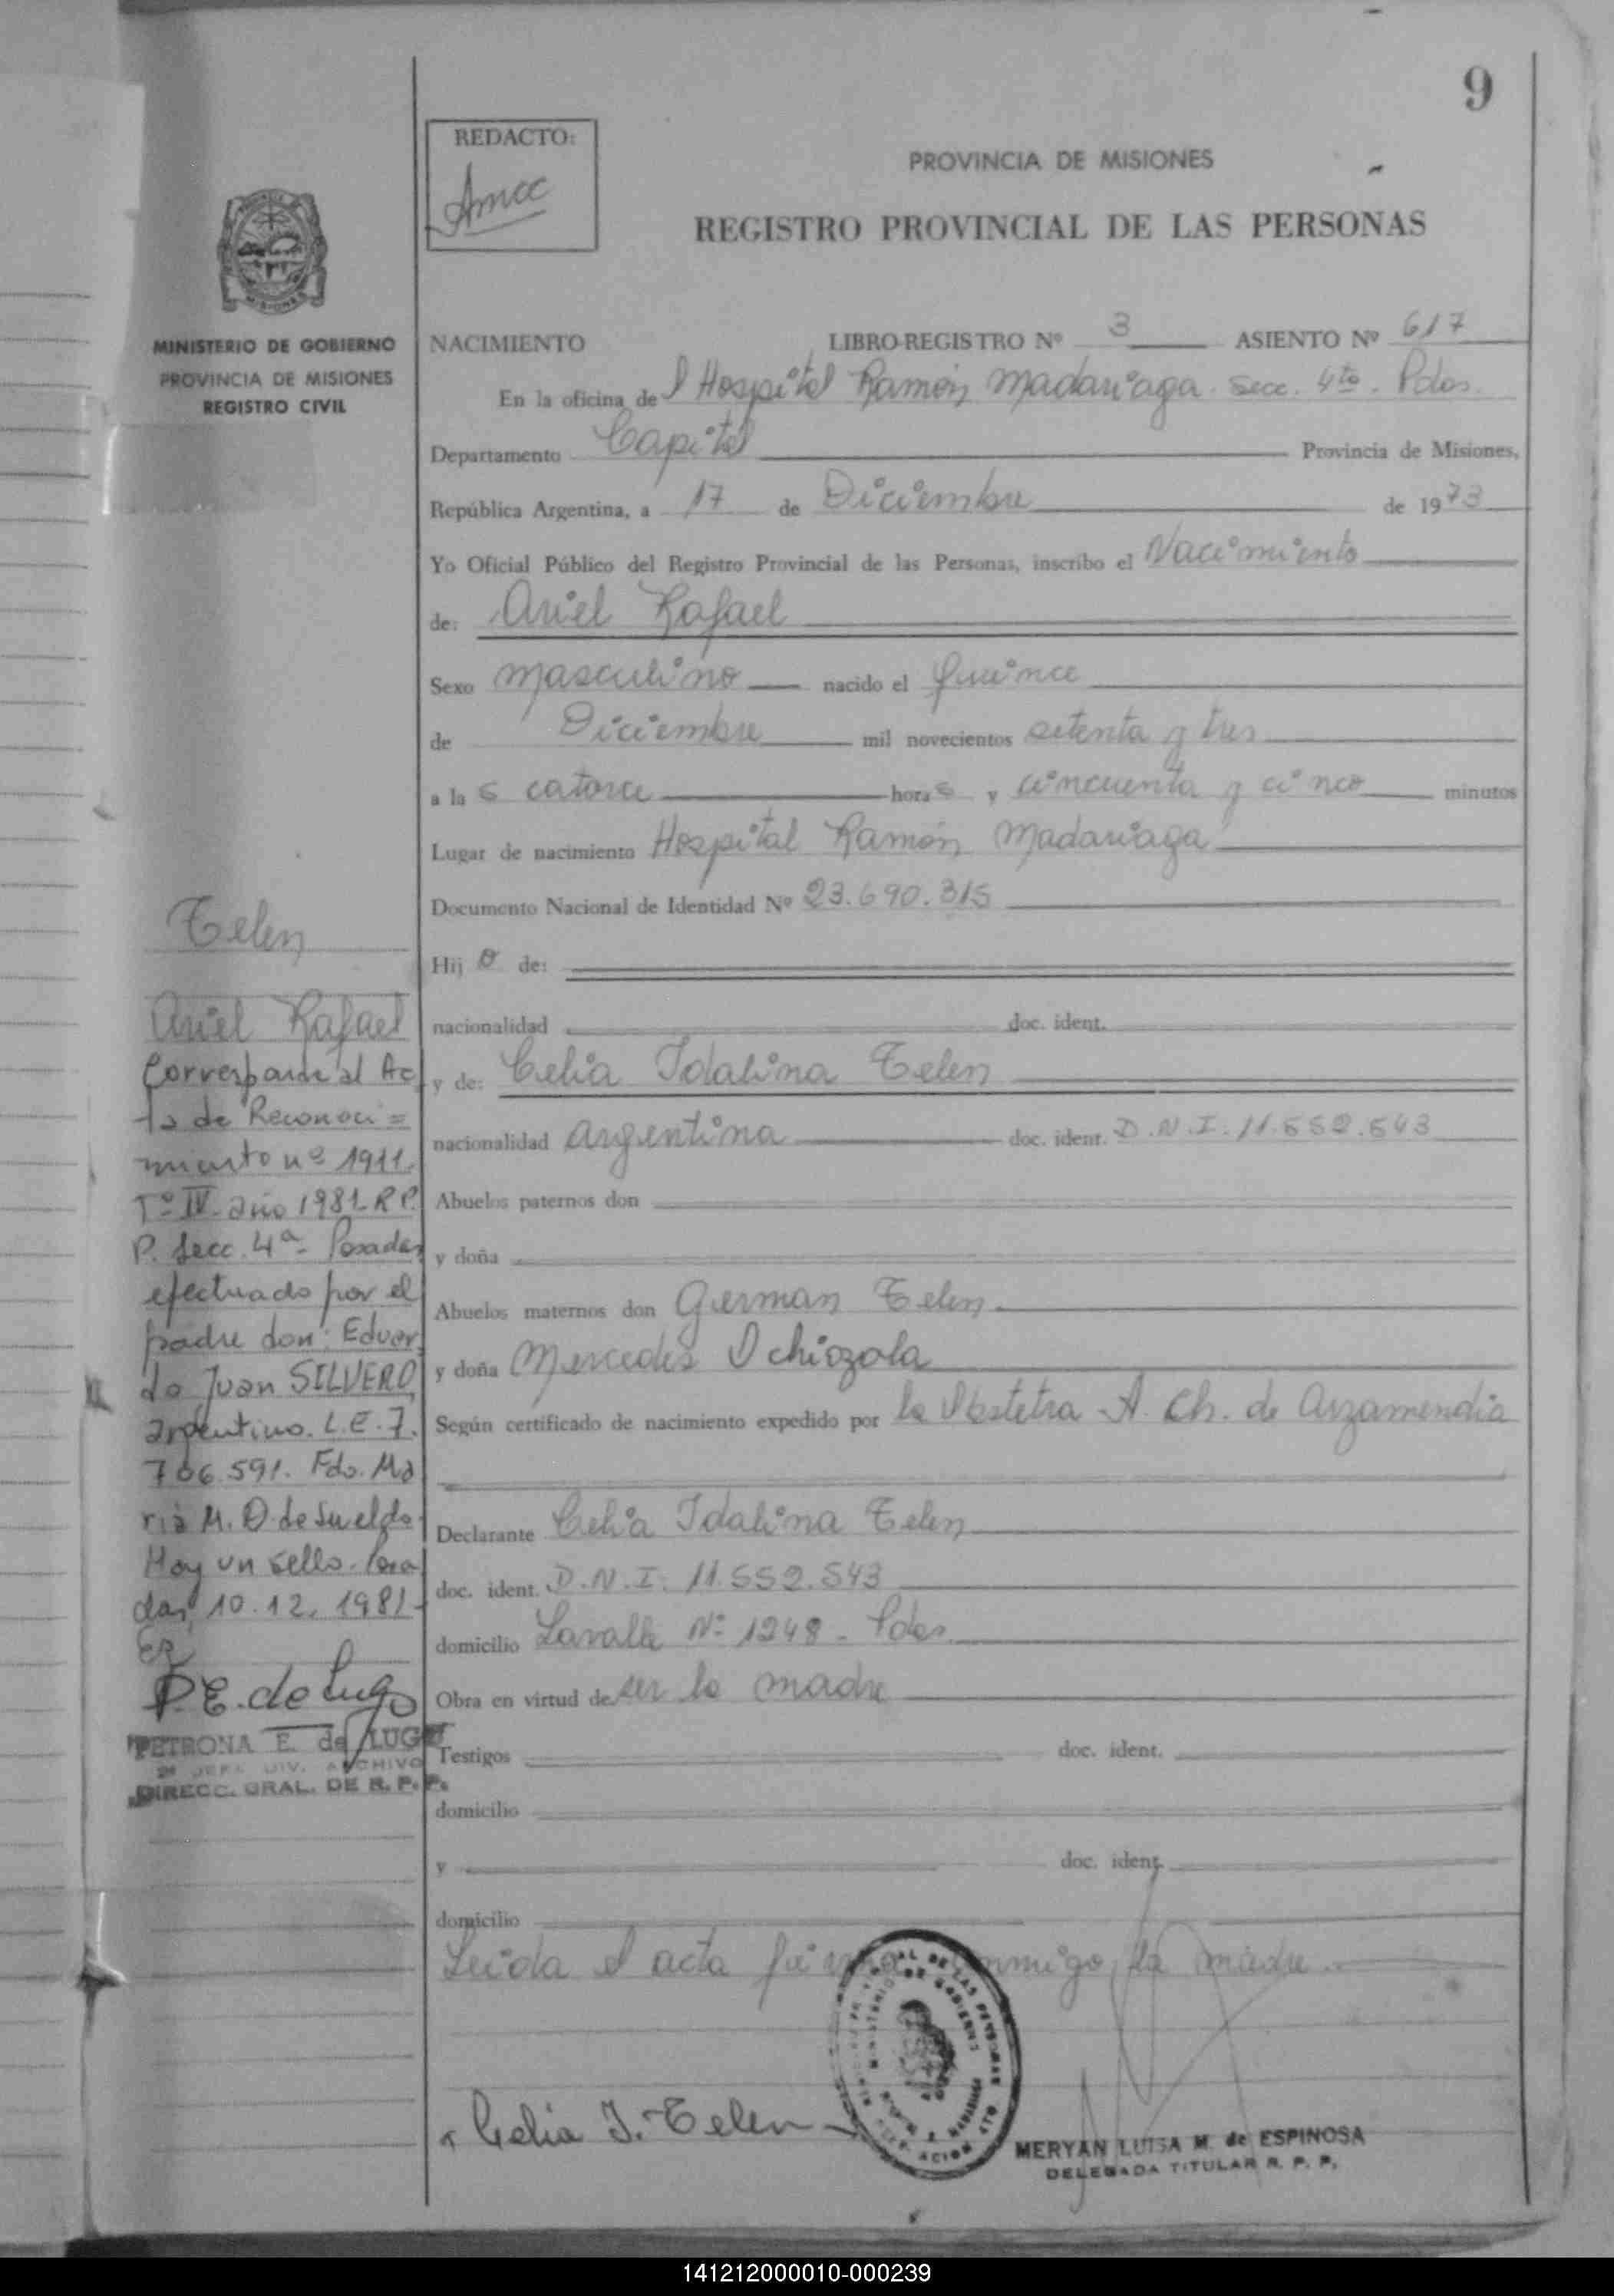 9
REDACTO:
Amcc
PROVINCIA DE MISIONES
REGISTRO PROVINCIAL DE LAS PERSONAS
MINISTERIO DE GOBIERNO
PROVINCIA DE MISIONES
REGISTRO CIVIL
NACIMIENTO LIBRO-REGISTRO Nº 3 ASIENTO Nº 617
En la oficina del Hospital Ramón Madariaga. Secc. 4to. Pdas.
Departamento Capital Provincia de Misiones,
República Argentina, a 17 de Diciembre de 1973
Yo Oficial Público del Registro Provincial de las Personas, inscribo el Nacimiento
de: Ariel Rafael
Sexo masculino nacido el quince
de Diciembre mil novecientos setenta y tres
a las catorce horas y cincuenta y cinco minutos
Lugar de nacimiento Hospital Ramón Madariaga
Documento Nacional de Identidad Nº 23.690.315
Hijo de:
nacionalidad doc. ident.
y de: Celia Idalina Telen
nacionalidad argentina doc. ident. D.N.I. 11.552.543
Abuelos paternos don
y doña
Abuelos maternos don German Telen.
y doña Mercedes Ochiozola
Según certificado de nacimiento expedido por la Obstetra A. Ch. de Arzamendia
Declarante Celia Idalina Telen
doc. ident. D.N.I. 11.552.543
domicilio Lavalle Nº 1248 - Pdas.
Obra en virtud de ser la madre
Testigos doc. ident.
domicilio
y doc. ident.
domicilio
Leida el acta firma conmigo la madre.
Celia I. Telen
MERYAN LUISA M. de ESPINOSA
DELEGADA TITULAR R. P. P.
Telen
Ariel Rafael
Corresponde al Ac
ta de Reconoci=
miento nº 1911.
Tº IV año 1981 R.P.
P. Secc. 4ª - Posadas
efectuado por el
padre don: Eduar
do Juan SILVERO,
argentino. L.E. 7.
706.591. Fdo. Ma
ria M. D. de Sueldo
Hay un sello. Posa
das, 10.12.1981-
P.E. de Lugo
PETRONA E. de LUGO
2º JEFE DIV. ARCHIVO
DIRECC. GRAL. DE R. P. P.
141212000010-000239